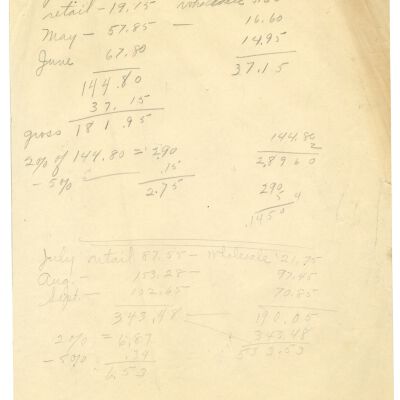 retail - 19.15 wholesale
May - 57.85 — 16.60
June 67.80 14.95
144.80 37.15
37.15
gross 181.95
2% of 144.80 = 2.90 144.80
- 5% .15 2
2.75 2.8960
290
.1450
July retail 87.55 - wholesale 21.75
Aug. - 153.28 - 97.45
Sept. - 102.65 70.85
343.48 — 190.05
2% = 6.87 343.48
- 5% .34 533.53
6.53